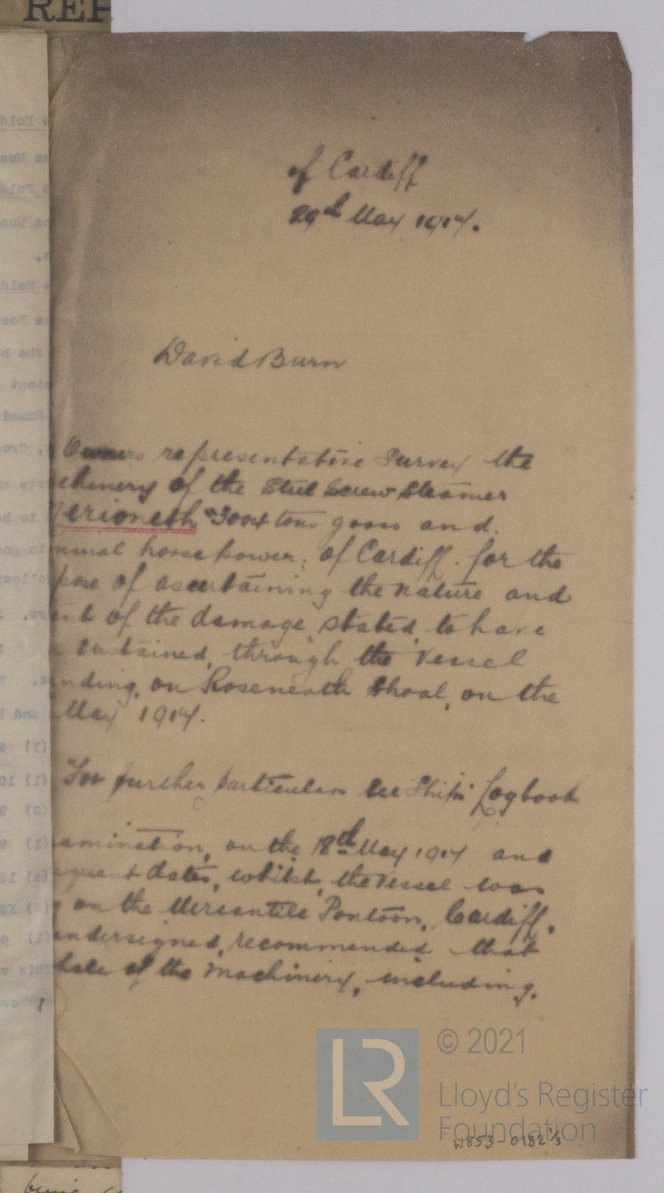 REP
of Cardiff
29th May 1917.
David Burn
Owners representative Survey the
chinery of the Steel Screw Steamer
Merioneth "3004 tons gross and.
minal horse power; of Cardiff. for the
pose of ascertaining the nature and
ent of the damage stated to have
sustained, through the vessel
nding, on Roseneath Shoal, on the
May 1917.
For further particulars see Ships Logbook
amination, on the 18th May 1917 and
equent dates, whilst, the vessel was
g on the Mercantile Pontoon, Cardiff.
undersigned, recommended that
hole of the Machinery, including.
LR
© 2021
Lloyd's Register
Foundation
W853-0182 1/3